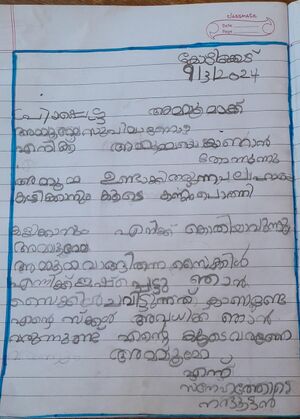 classmate
Date
Page
കോടിക്കുട്
9/3/2024
പ്രിയപ്പെട്ട അമ്മൂമ്മക്ക്
അമ്മൂമ്മ സുഖമാണോ
എനിക്ക് അമ്മൂമ്മയെ കാണാൻ
തോന്നുന്നു
അമ്മൂമ്മ ഉണ്ടാക്കി തരുന്ന പലഹാരം
കഴിക്കാനും കൂടെ കണ്ണുംപൊത്തി
കളിക്കാനും എനിക്ക് കൊതിയാവുന്നു
അമ്മൂമ്മേ
അമ്മൂമ്മ വാങ്ങിതന്ന സൈക്കിൾ
എനിക്ക് ഇഷ്ടപ്പെട്ടു ഞാൻ
സൈക്കിൾ ചവിട്ടുന്നത് കാണണ്ടേ
എന്റെ സ്ക്കൂൾ അവധിക്ക് ഞാൻ
വരുന്നുണ്ട് എന്റെ കൂടെ വരണേ
അമ്മൂമ്മേ
എന്ന്
സ്നേഹത്തോടെ
നന്ദുകുട്ടൻ